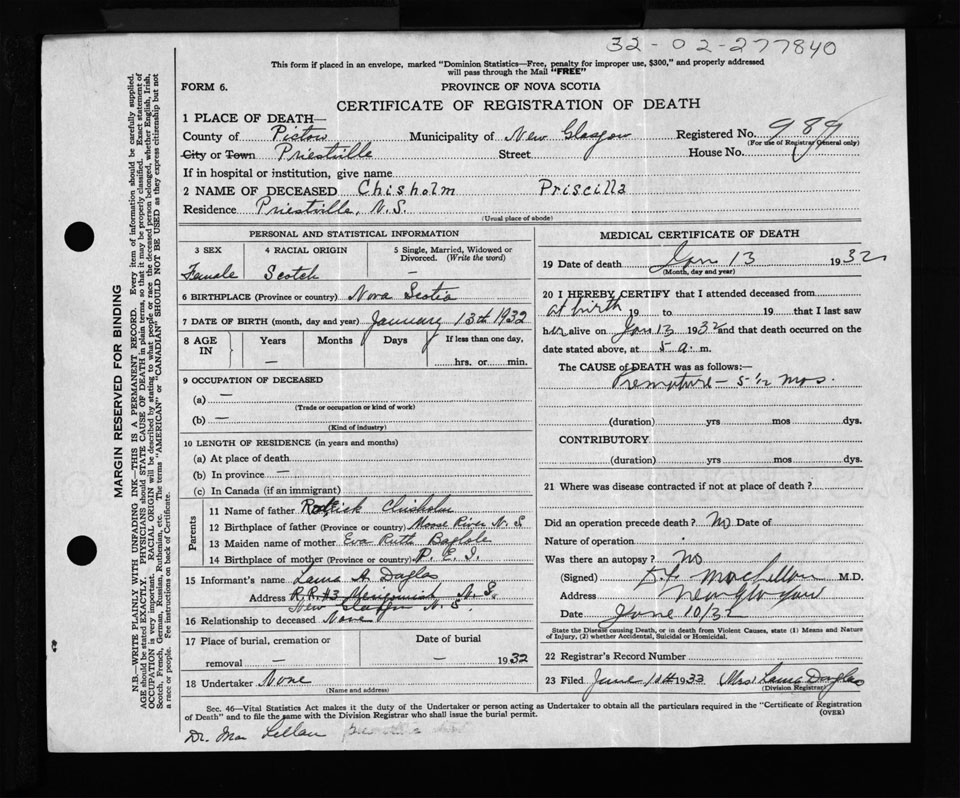 32-02-277840
This form if placed in an envelope, marked "Dominion Statistics—Free, penalty for improper use, $300," and properly addressed
will pass through the Mail "FREE"
FORM 6. PROVINCE OF NOVA SCOTIA
CERTIFICATE OF REGISTRATION OF DEATH
1 PLACE OF DEATH—
County of Pictou Municipality of New Glasgow Registered No. 989
(For use of Registrar General only)
City or Town Priestville Street House No.
If in hospital or institution, give name
2 NAME OF DECEASED Chisholm Priscilla
Residence Priestville, N.S.
(Usual place of abode)
PERSONAL AND STATISTICAL INFORMATION
3 SEX 4 RACIAL ORIGIN 5 Single, Married, Widowed or
Divorced. (Write the word)
Female Scotch —
6 BIRTHPLACE (Province or country) Nova Scotia
7 DATE OF BIRTH (month, day and year) January 13th 1932
8 AGE IN Years Months Days If less than one day,
— hrs. or min.
9 OCCUPATION OF DECEASED
(a) —
(Trade or occupation or kind of work)
(b) —
(Kind of industry)
10 LENGTH OF RESIDENCE (in years and months)
(a) At place of death
(b) In province —
(c) In Canada (if an immigrant)
Parents
11 Name of father Chisholm
12 Birthplace of father (Province or country) Moose River N.S
13 Maiden name of mother Eva Ruth
14 Birthplace of mother (Province or country) P.E.I.
15 Informant's name A.
Address R.R.#3 N.S.
New Glasgow N.S.
16 Relationship to deceased None
17 Place of burial, cremation or Date of burial
removal — — 1932
18 Undertaker None
(Name and address)
MEDICAL CERTIFICATE OF DEATH
19 Date of death Jan 13 1932
(Month, day and year)
20 I HEREBY CERTIFY that I attended deceased from
at birth 19 to 19 that I last saw
her alive on Jan 13 1932 and that death occurred on the
date stated above, at 5 a. m.
The CAUSE of DEATH was as follows:—
Premature — 5 1/2 mos.
(duration) yrs mos dys.
CONTRIBUTORY
(duration) yrs mos dys.
21 Where was disease contracted if not at place of death?
Did an operation precede death? No Date of
Nature of operation
Was there an autopsy? No
(Signed) MacLellan M.D.
Address New Glasgow
Date June 10/32
State the Disease causing Death, or in death from Violent Causes, state (1) Means and Nature
of Injury, (2) whether Accidental, Suicidal or Homicidal.
22 Registrar's Record Number
23 Filed June 1932 Mrs
(Division Registrar)
Sec. 46—Vital Statistics Act makes it the duty of the Undertaker or person acting as Undertaker to obtain all the particulars required in the "Certificate of Registration
of Death" and to file the same with the Division Registrar who shall issue the burial permit. (OVER)
Dr. Mac Lellan
MARGIN RESERVED FOR BINDING
N.B.—WRITE PLAINLY WITH UNFADING INK—THIS IS A PERMANENT RECORD. Every item of information should be carefully supplied.
AGE should be stated EXACTLY. PHYSICIANS should STATE CAUSE OF DEATH in plain terms, so that it may be properly classified. Exact statement of
OCCUPATION is very important. RACIAL ORIGIN will be described by stating to what people or race the deceased person belonged, whether English, Irish,
Scotch, French, German, Russian, Ruthenian, etc. The terms "AMERICAN" or "CANADIAN" SHOULD NOT BE USED as they express citizenship but not
a race or people. Fee instructions on back of Certificate.